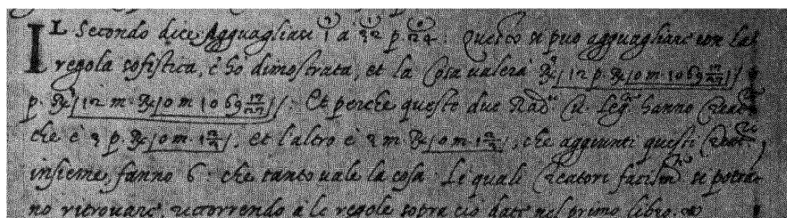 IL Secondo dice Agguaglisi 1 a 32 p. 24: Questo si puo agguagliare con la
regola sofistica, c'ho dimostrata, et la Cosa valerà R³[12 p. R[0 m. 1069 17/27]]
p. R³[12 m. R[0 m. 1069 17/27]]: Et perche queste due Rad. Cu. leg. hanno
che è 3 p. R[0 m. 1 2/3], et l'altro è 3 m. R[0 m. 1 2/3], che aggiunti questi
insieme, fanno 6: che tanto vale la cosa. Li quali Creatori si potra-
no ritrovare, ricorrendo à le regole sopra ciò date nel primo libro.